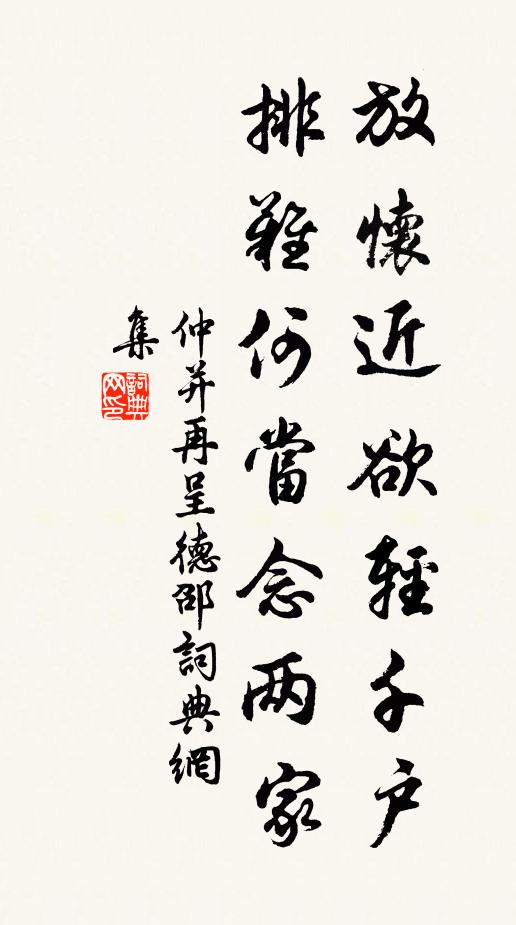 放懷近欲輕千户
排難何當念两家
仲并再呈德邵詞典網
集
詞典
网印